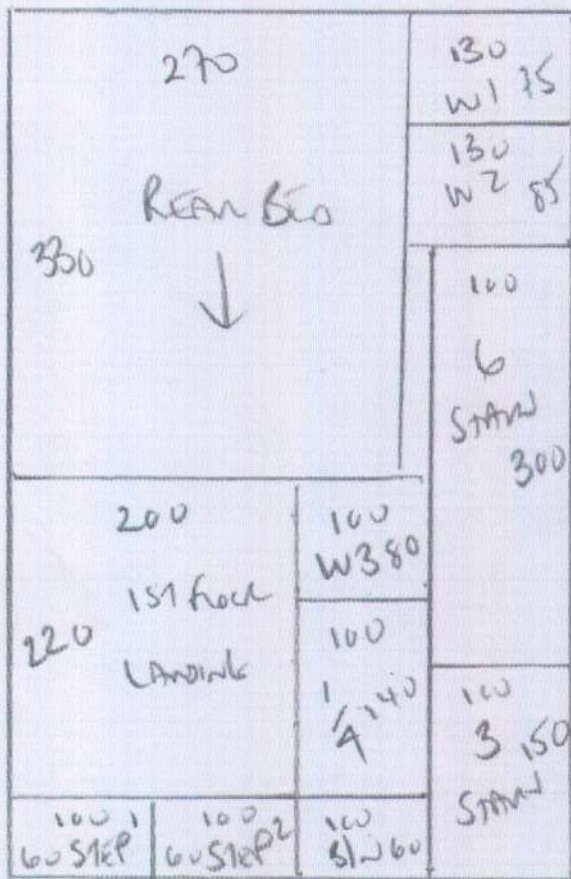 270
REAR BED
330
130
W1 75
130
W2 85
100
6
STAIRS
300
200
1ST FLOOR
220
LANDING
100
W3 80
100
1/4 140
100
3 150
STAIRS
100 1
60 STEP
100 2
60 STEP
100
60